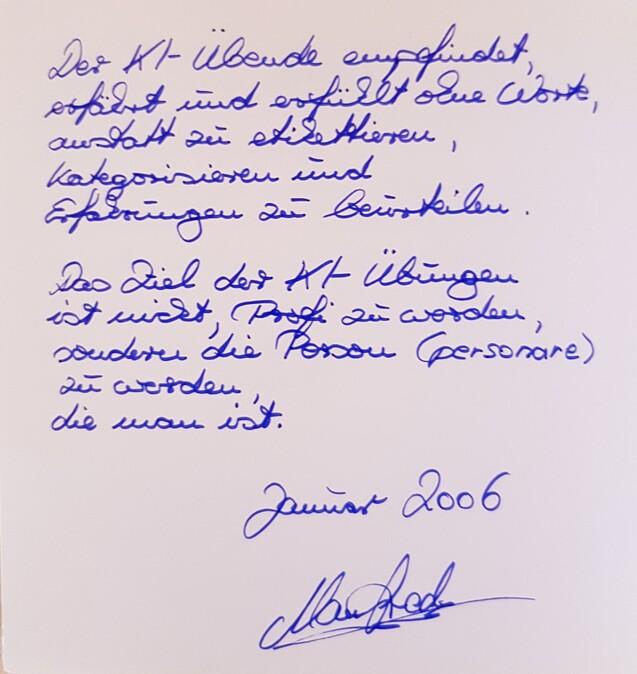 Der KI-Übende empfindet,
erfährt und erfühlt ohne Worte,
anstatt zu etikettieren,
kategorisieren und
Erfahrungen zu beurteilen.
Das Ziel der KI-Übungen
ist nicht, Profi zu werden,
sondern die Person (personare)
zu werden,
die man ist.
Januar 2006
Manfred